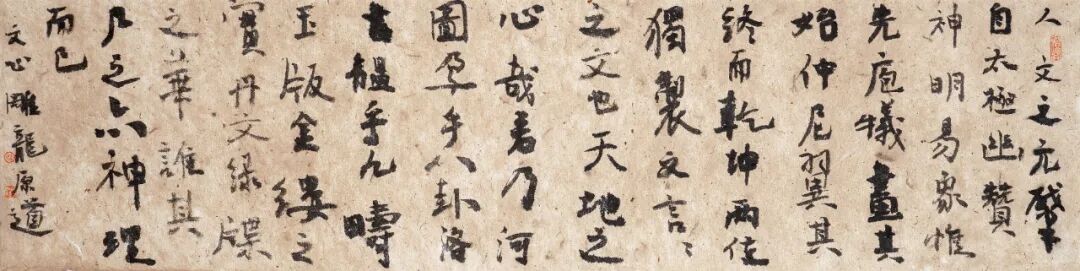 人文之元肇
自太極幽贊
神明易象惟
先庖犧畫其
始仲尼翼其
終而乾坤兩位
獨製文言〻
之文也天地之
心哉若乃河
圖孕乎八卦洛
書韞乎九疇
玉版金縷之
實丹文綠牒
之華誰其
尸之亦神理
而已
文心雕龍原道